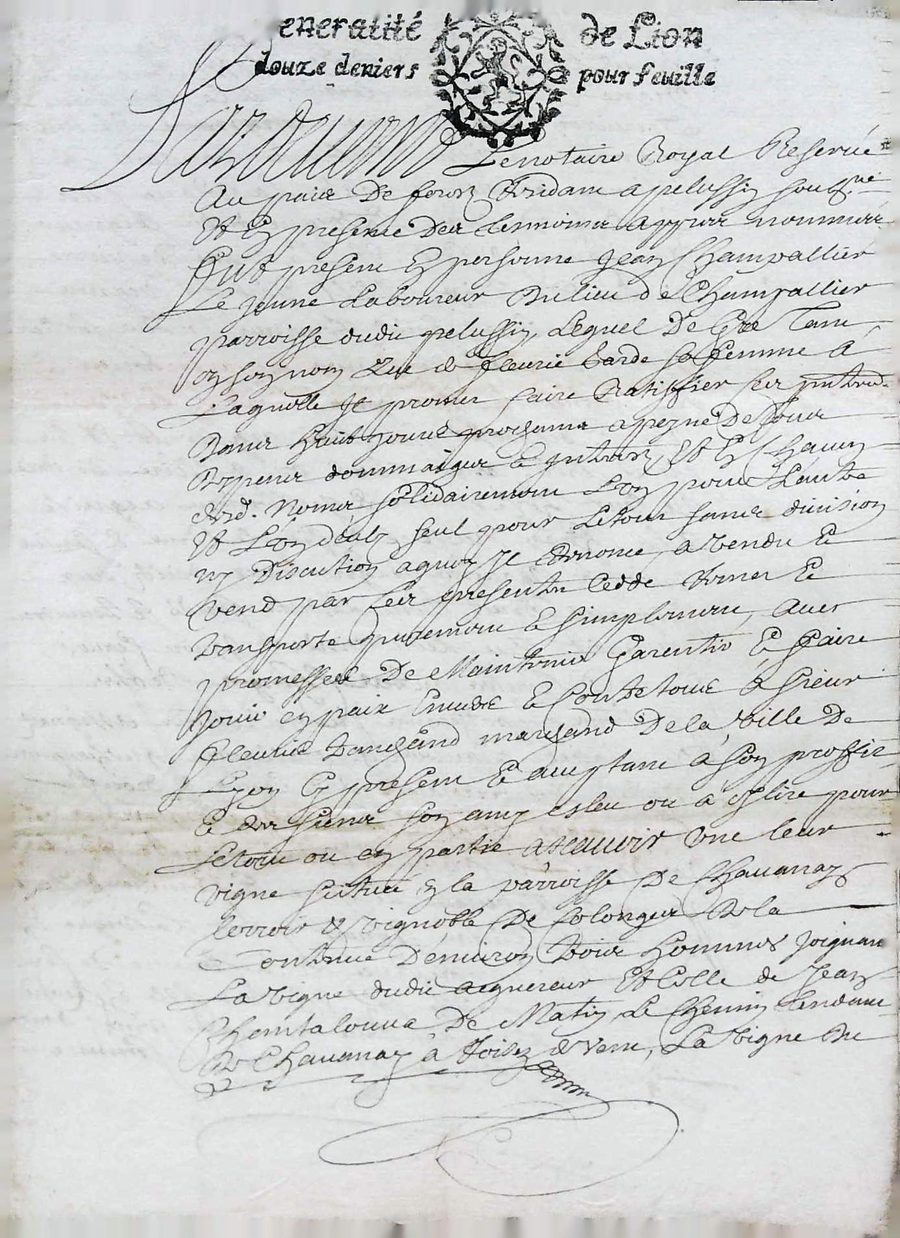 eneralité de Lion
douze deniers pour feuille
Pardevant Le notaire Royal Reservé
Au paiis De forez Residant a pelussin soubsné
Et En presence Des tesmoins appres nommés
fut present En personne Jean Champallier
Le Jeune Laboureur Du lieu de Champallier
parroisse dudit pelussin, Lequel De Gré Tant
En son nom Que de fleurie barde sa femme A
Laquelle Il promet faire Ratiffier Ces
Dans huit Jours prochains a peyne De tous
Despens dommaiges & et En Chacun
desd. Noms sollidairement L'un pour L'autre
Et L'un deulx seul pour Letout sans division
ny Discution aquoy Il Renonce, a vendu Et
Vend par Ces presentes Cedde Remet Et
transporte purement Et simplement, avec
promesses De Maintenir Garentir Et faire
Jouir en paix Envers Et Contre tous A sieur
fleurie marchand De la Ville De
Lyon Cy present Et aceptant a son proffit
Et des siens son amy esleu ou a eslire pour
Letout ou en partie Ascavoir Une leur
vigne scituée En la parroisse De Chavanay
terroir Et vignoble De Colonges De la
Contenue D'environ trois hommes Joignant
La vigne dudit acquereur Et Celle de Jean
De Matin Le Chemin tendant
De Chavanay a de vent, La vigne De